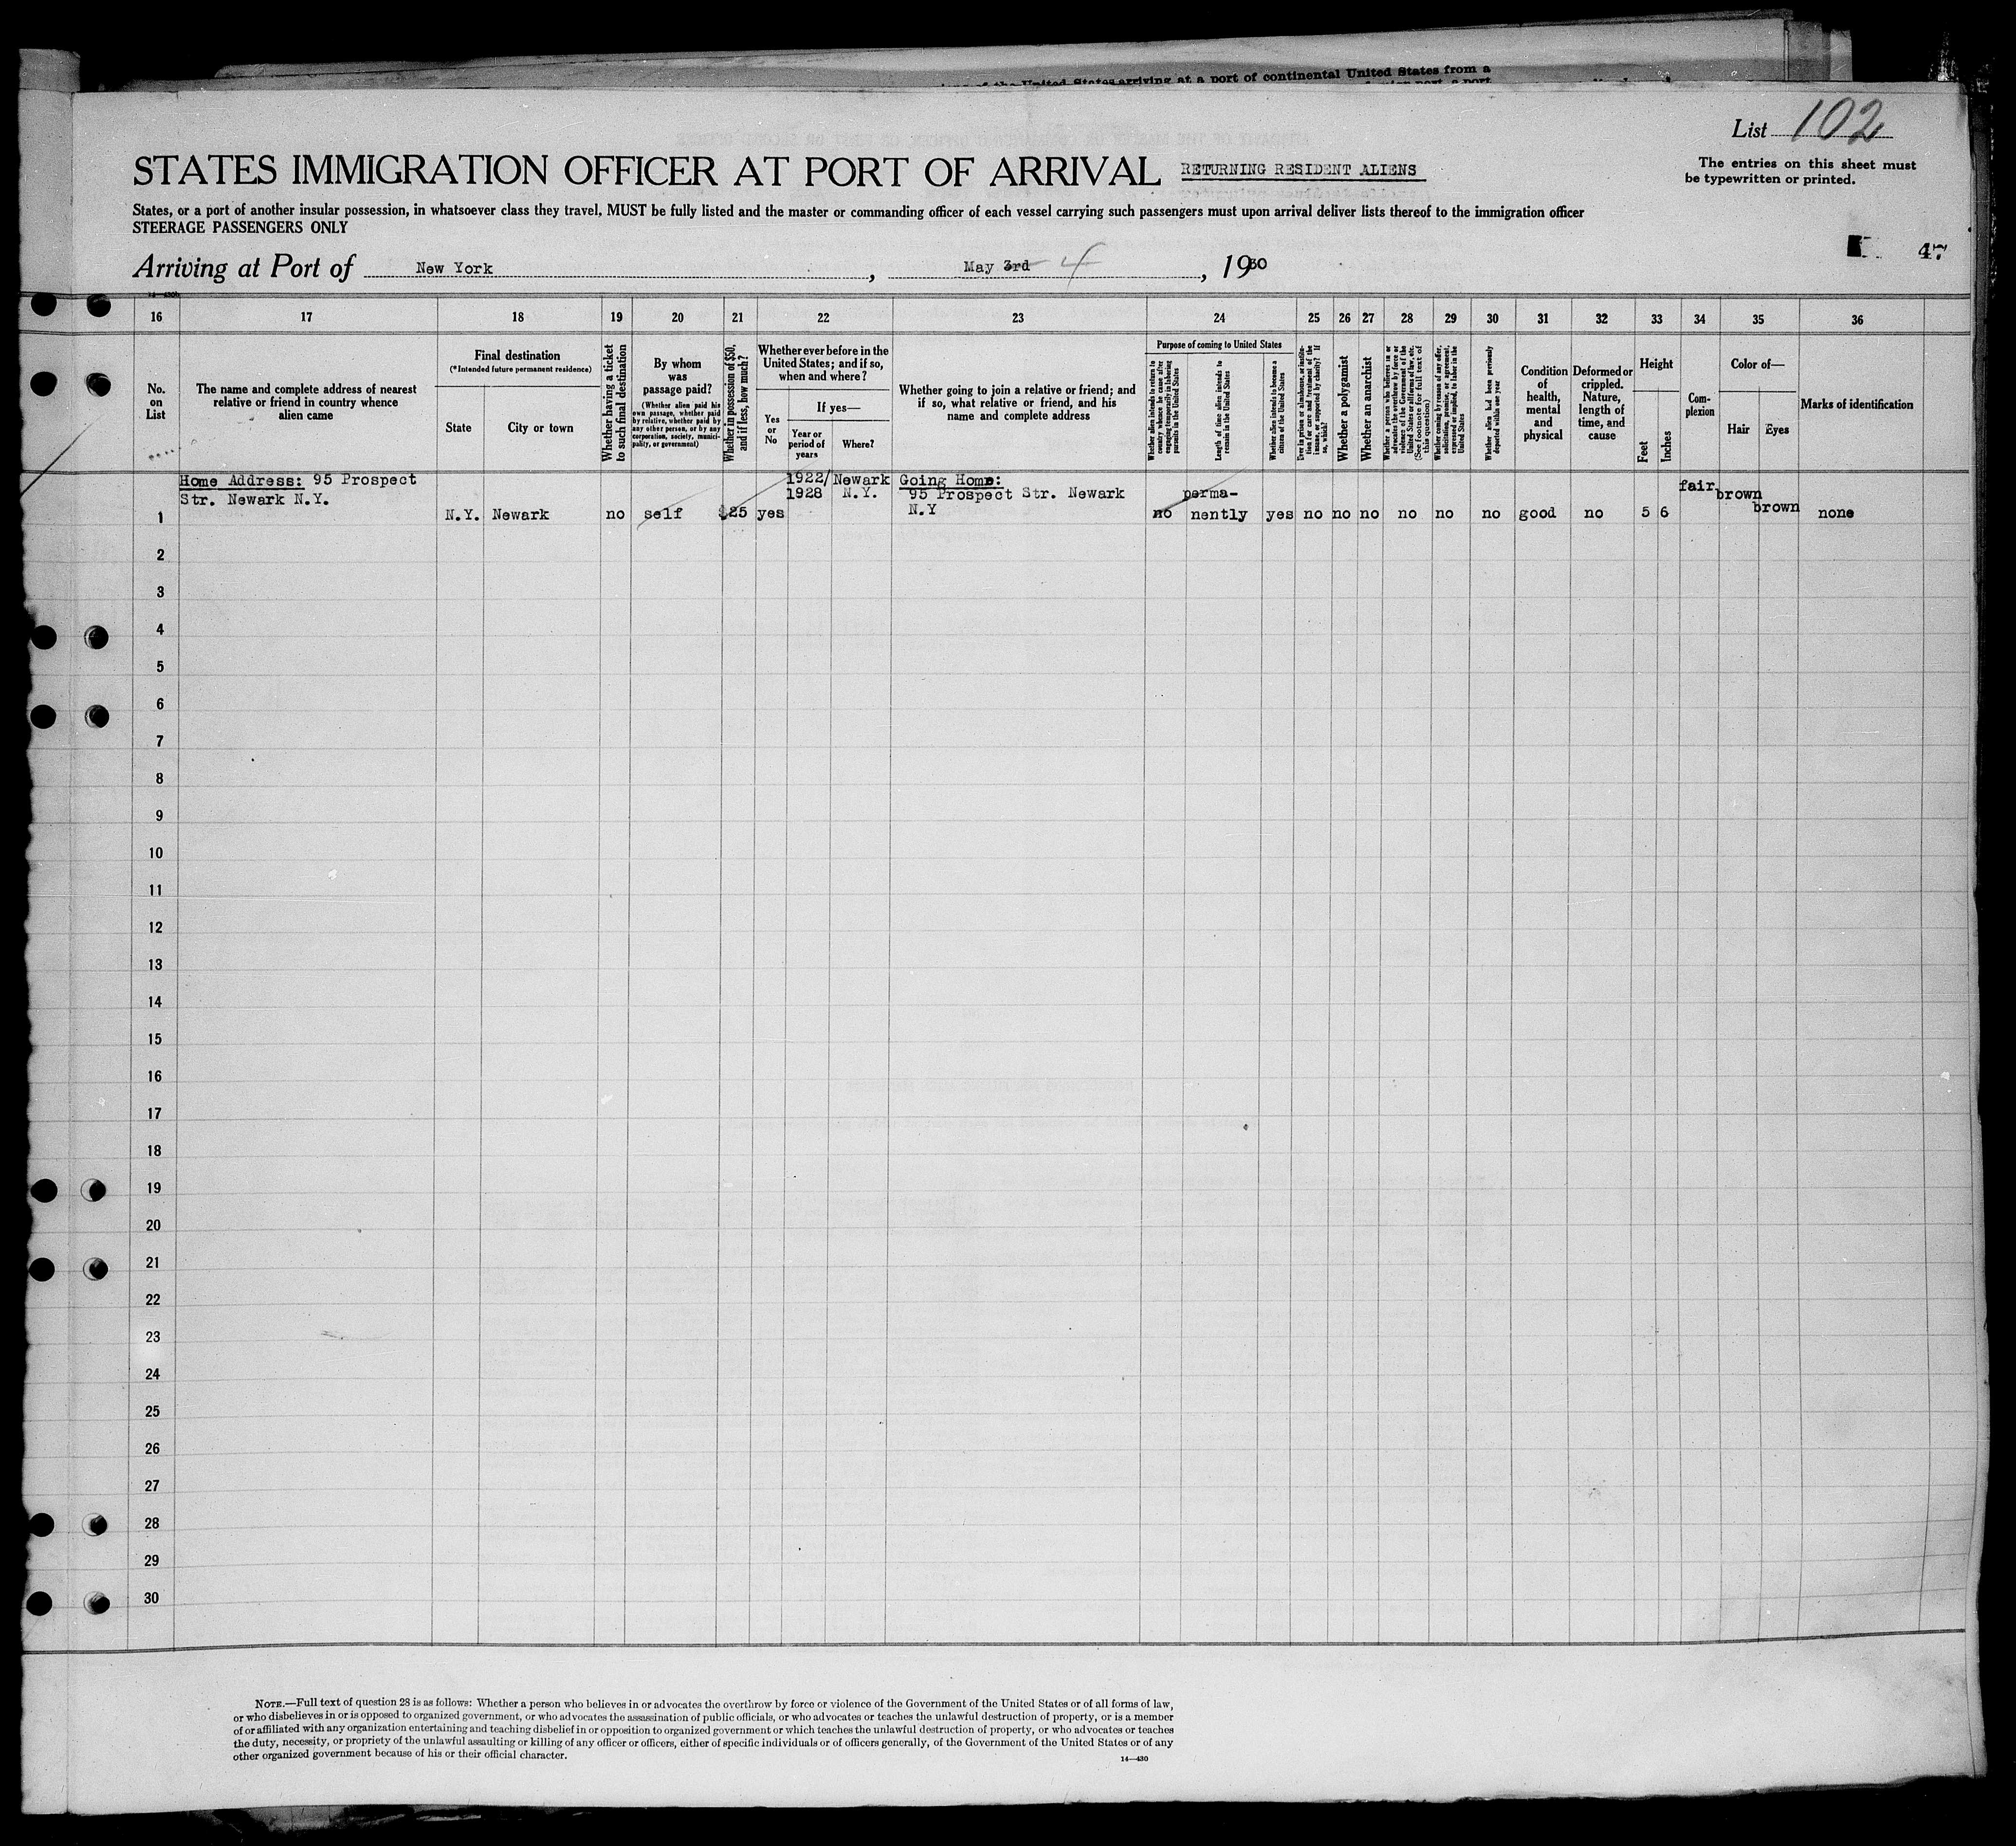 of the United States arriving at a port of continental United States from a
List 102
The entries on this sheet must
be typewritten or printed.
STATES IMMIGRATION OFFICER AT PORT OF ARRIVAL
RETURNING RESIDENT ALIENS
States, or a port of another insular possession, in whatsoever class they travel, MUST be fully listed and the master or commanding officer of each vessel carrying such passengers must upon arrival deliver lists thereof to the immigration officer
STEERAGE PASSENGERS ONLY
47
Arriving at Port of New York, May 3rd 4, 1930
16 17 18 19 20 21 22 23 24 25 26 27 28 29 30 31 32 33 34 35 36
No. on List
The name and complete address of nearest relative or friend in country whence alien came
Final destination
(*Intended future permanent residence)
State
City or town
Whether having a ticket to such final destination
By whom was passage paid?
(Whether alien paid his own passage, whether paid by relative, whether paid by any other person, or by any corporation, society, municipality, or government)
Whether in possession of $50, and if less, how much?
Whether ever before in the United States; and if so, when and where?
Yes or No
If yes—
Year or period of years
Where?
Whether going to join a relative or friend; and if so, what relative or friend, and his name and complete address
Purpose of coming to United States
Whether alien intends to return to country whence he came after engaging temporarily in laboring pursuits in the United States
Length of time alien intends to remain in the United States
Whether alien intends to become a citizen of the United States
Ever in prison or almshouse, or institution for care and treatment of the insane, or supported by charity? If so, which?
Whether a polygamist
Whether an anarchist
Whether a person who believes in or advocates the overthrow by force or violence of the Government of the United States or all forms of law, etc. (See footnote for full text of this question)
Whether coming by reason of any offer, solicitation, promise, or agreement, expressed or implied, to labor in the United States
Whether alien had been previously deported within one year
Condition of health, mental and physical
Deformed or crippled. Nature, length of time, and cause
Height
Feet
Inches
Complexion
Color of—
Hair
Eyes
Marks of identification
Home Address: 95 Prospect
Str. Newark N.Y.
1 N.Y. Newark no self $25 yes
1922/ Newark
1928 N.Y.
Going Home:
95 Prospect Str. Newark
N.Y
no perma-
nently yes no no no no no no good no 5 6 fair brown brown none
2
3
4
5
6
7
8
9
10
11
12
13
14
15
16
17
18
19
20
21
22
23
24
25
26
27
28
29
30
NOTE.—Full text of question 28 is as follows: Whether a person who believes in or advocates the overthrow by force or violence of the Government of the United States or of all forms of law,
or who disbelieves in or is opposed to organized government, or who advocates the assassination of public officials, or who advocates or teaches the unlawful destruction of property, or is a member
of or affiliated with any organization entertaining and teaching disbelief in or opposition to organized government or which teaches the unlawful destruction of property, or who advocates or teaches
the duty, necessity, or propriety of the unlawful assaulting or killing of any officer or officers, either of specific individuals or of officers generally, of the Government of the United States or of any
other organized government because of his or their official character.
14—430